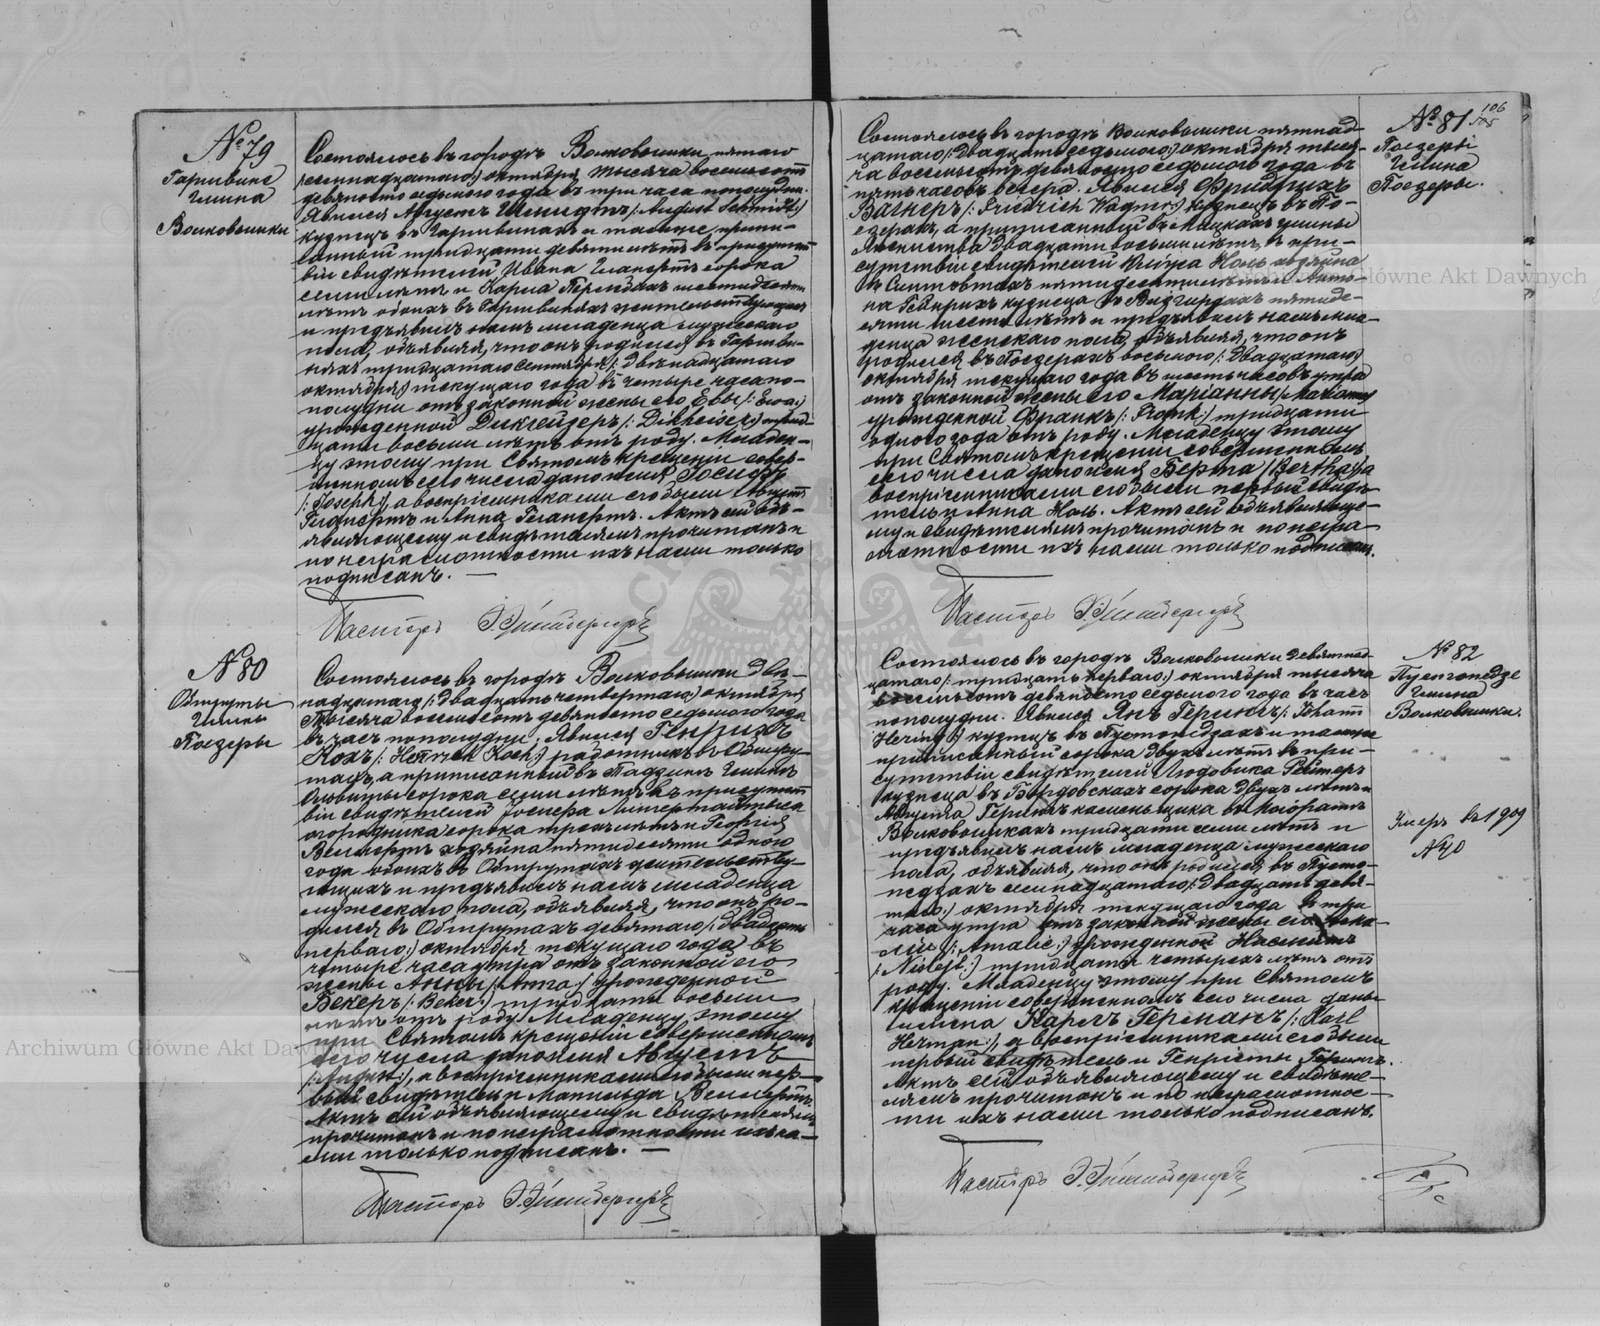 № 79
Гаршвине
гмина
Волковышки
Состоялось въ городѣ Волковышки пятаго
/:семнадцатаго:/ октября тысяча восемьсотъ
девяносто седьмого года въ три часа пополудни.
Явился Августъ Шмидтъ /:August Schmidt:/
кузнецъ въ Гаршвинахъ и тамъ же припи-
санный тридцати девяти лѣтъ въ присутст-
віи свидѣтелей Ивана сорока
семи лѣтъ и Карла шестидесяти
лѣтъ обоихъ въ Гаршвинахъ жительствующихъ
и предъявилъ намъ младенца мужескаго
пола, объявляя, что онъ родился въ Гаршви-
нахъ тридцатаго Сентября /:двѣнадцатаго
октября:/ текущаго года въ четыре часа по-
полудни отъ законной жены его Евы /:Ewa:/
урожденной Дикгейзеръ /:Dikheiser:/ трид-
цати восьми лѣтъ отъ роду. Младен-
цу этому при Святомъ крещеніи совер-
шенномъ сего числа дано имя Іосифъ
/:Joseph:/, а воспріемниками его были Августъ
Геганертъ и Анна Геганертъ. Актъ сей объ-
являющему и свидѣтелямъ прочитанъ и
по неграмотности ихъ нами только
подписанъ. —
Пасторъ
№ 80
Обшруты
гмины
Поезеры
Состоялось въ городѣ Волковышки двѣ-
надцатаго /:двадцать четвертаго:/ октября
тысяча восемьсотъ девяносто седьмого года
въ часъ пополудни. Явился Генрихъ
Кохъ /:Heinrich Koch:/ работникъ въ Обшру-
тахъ, а приписанный въ гминѣ
Ольвиты сорока семи лѣтъ въ присутст-
віи свидѣтелей
огородника сорока трехъ лѣтъ и Георгія
Веллертъ хозяина пятидесяти одного
года обоихъ въ Обшрутахъ жительству-
ющихъ и предъявилъ намъ младенца
мужескаго пола, объявляя, что онъ ро-
дился въ Обшрутахъ девятаго /:двадцать
перваго:/ октября текущаго года въ
четыре часа утра отъ законной его
жены Анны /:Anna:/ урожденной
Бекеръ /:Beker:/ тридцати восьми
лѣтъ отъ роду. Младенцу этому
при Святомъ крещеніи совершенномъ
сего числа дано имя Августъ
/:August:/, а воспріемниками его были пер-
вый свидѣтель и Матильда Веллертъ.
Актъ сей объявляющему и свидѣтелямъ
прочитанъ и по неграмотности ихъ на-
ми только подписанъ. —
Пасторъ
№ 81
106
105
Поезеры
гмина
Поезеры.
Состоялось въ городѣ Волковышки пятнад-
цатаго /:двадцать седьмого:/ октября тыся-
ча восемьсотъ девяносто седьмого года въ
пять часовъ вечера. Явился Фридрихъ
Вагнеръ /:Friedrich Wagner:/ кузнецъ въ По-
езерахъ, а приписанный въ Мицкахъ гмины
двадцати восьми лѣтъ, въ при-
сутствіи свидѣтелей Ноль хозяина
въ пятидесяти лѣтъ и
на Гейнрихъ кузнеца въ пятиде-
сяти шести лѣтъ и предъявилъ намъ мла-
денца женскаго пола, объявляя, что онъ
родился въ Поезерахъ восьмого /:двадцатаго:/
октября текущаго года въ шесть часовъ утра
отъ законной жены его Маріанны /:Marianna:/
урожденной Франкъ /:Frank:/ тридцати
одного года отъ роду. Младенцу этому
при Святомъ крещеніи совершенномъ
сего числа дано имя Берта /:Bertha:/, а
воспріемниками его были первый свидѣ-
тель и Анна Ноль. Актъ сей объявляюще-
му и свидѣтелямъ прочитанъ и по негра-
мотности ихъ нами только подписанъ.
Пасторъ
№ 82
Пустопедзе
гмина
Волковышки.
Состоялось въ городѣ Волковышки девятнад-
цатаго /:тридцать перваго:/ октября тысяча
восемьсотъ девяносто седьмого года въ часъ
пополудни. Явился Янъ Герингъ /:Johann
Hering:/ кузнецъ въ Пустопедзахъ и тамъ же
приписанный сорока двухъ лѣтъ въ при-
сутствіи свидѣтелей Людовика Рейтеръ
кузнеца въ сорока двухъ лѣтъ и
Августа Герингъ каменьщика въ Маіоратѣ
Волковышкахъ тридцати семи лѣтъ и
предъявилъ намъ младенца мужескаго
пола, объявляя, что онъ родился въ Пусто-
педзахъ семнадцатаго /:двадцать девя-
таго:/ октября текущаго года въ три
часа утра отъ законной жены его Ама-
ліи /:Amalie:/ урожденной
тридцати четырехъ лѣтъ отъ
роду. Младенцу этому при Святомъ
крещеніи совершенномъ сего числа даны
имена Карлъ Германъ /:Karl
Herman:/, а воспріемниками его были
первый свидѣтель и Генріета Герингъ.
Актъ сей объявляющему и свидѣте-
лямъ прочитанъ и по неграмотнос-
ти ихъ нами только подписанъ.
Пасторъ
Умеръ въ 1909
№ 40
Archiwum Główne Akt Dawnych
Archiwum Główne Akt Dawnych